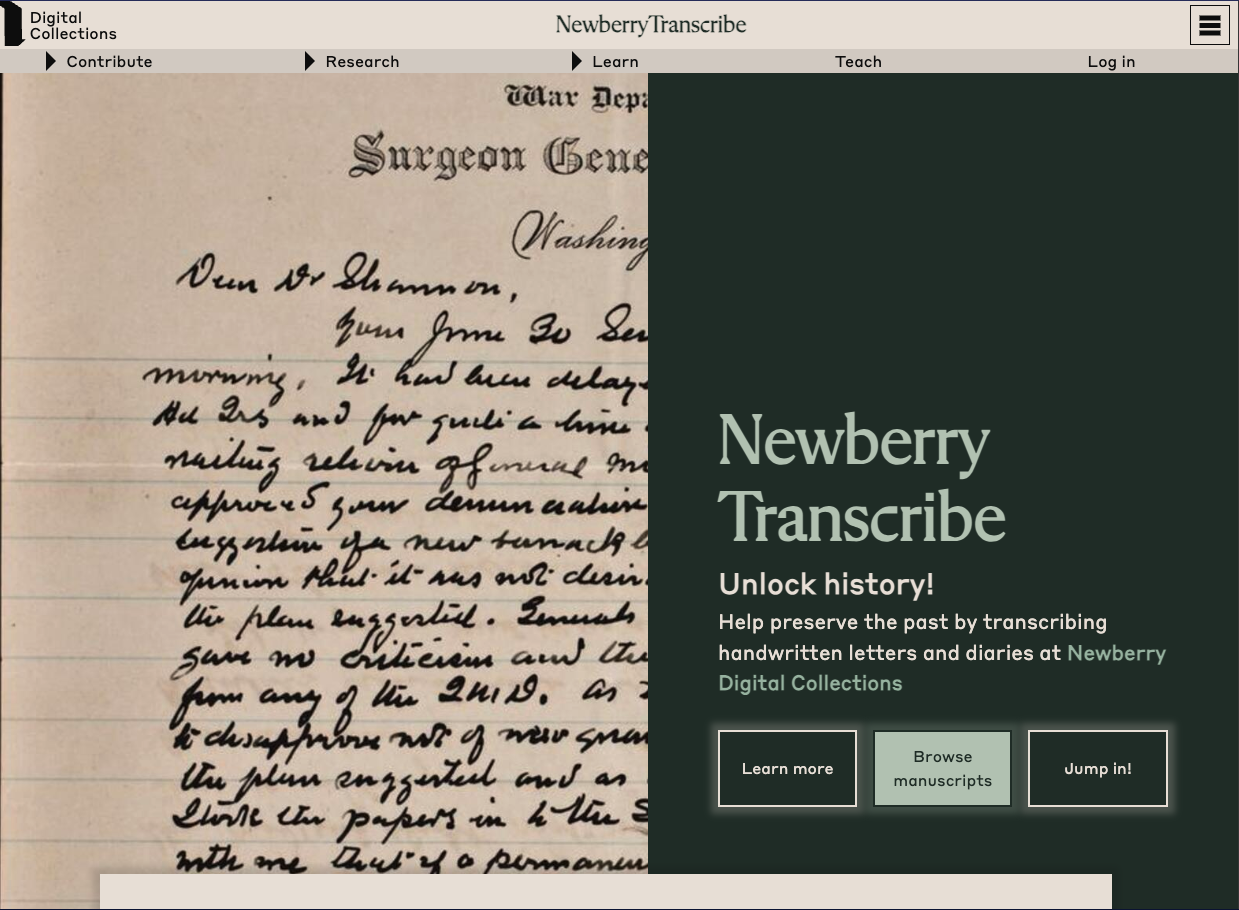 Digital
Collections
NewberryTranscribe
Contribute
Research
Learn
Teach
Log in
War Depa
Surgeon Gene
Washing
Dear Dr Shannon,
your June 30
morning, It had been delay
and for quite a time
of General
approved your
suggestion of a new barrack
opinion that it was not desir
the plan suggested. Generals
gave no criticism and the
from any of the Q.M.D. As
to disapprove not of new
the plan suggested and as
the papers in to the S
with me that if a permanen
Newberry
Transcribe
Unlock history!
Help preserve the past by transcribing
handwritten letters and diaries at Newberry
Digital Collections
Learn more
Browse
manuscripts
Jump in!